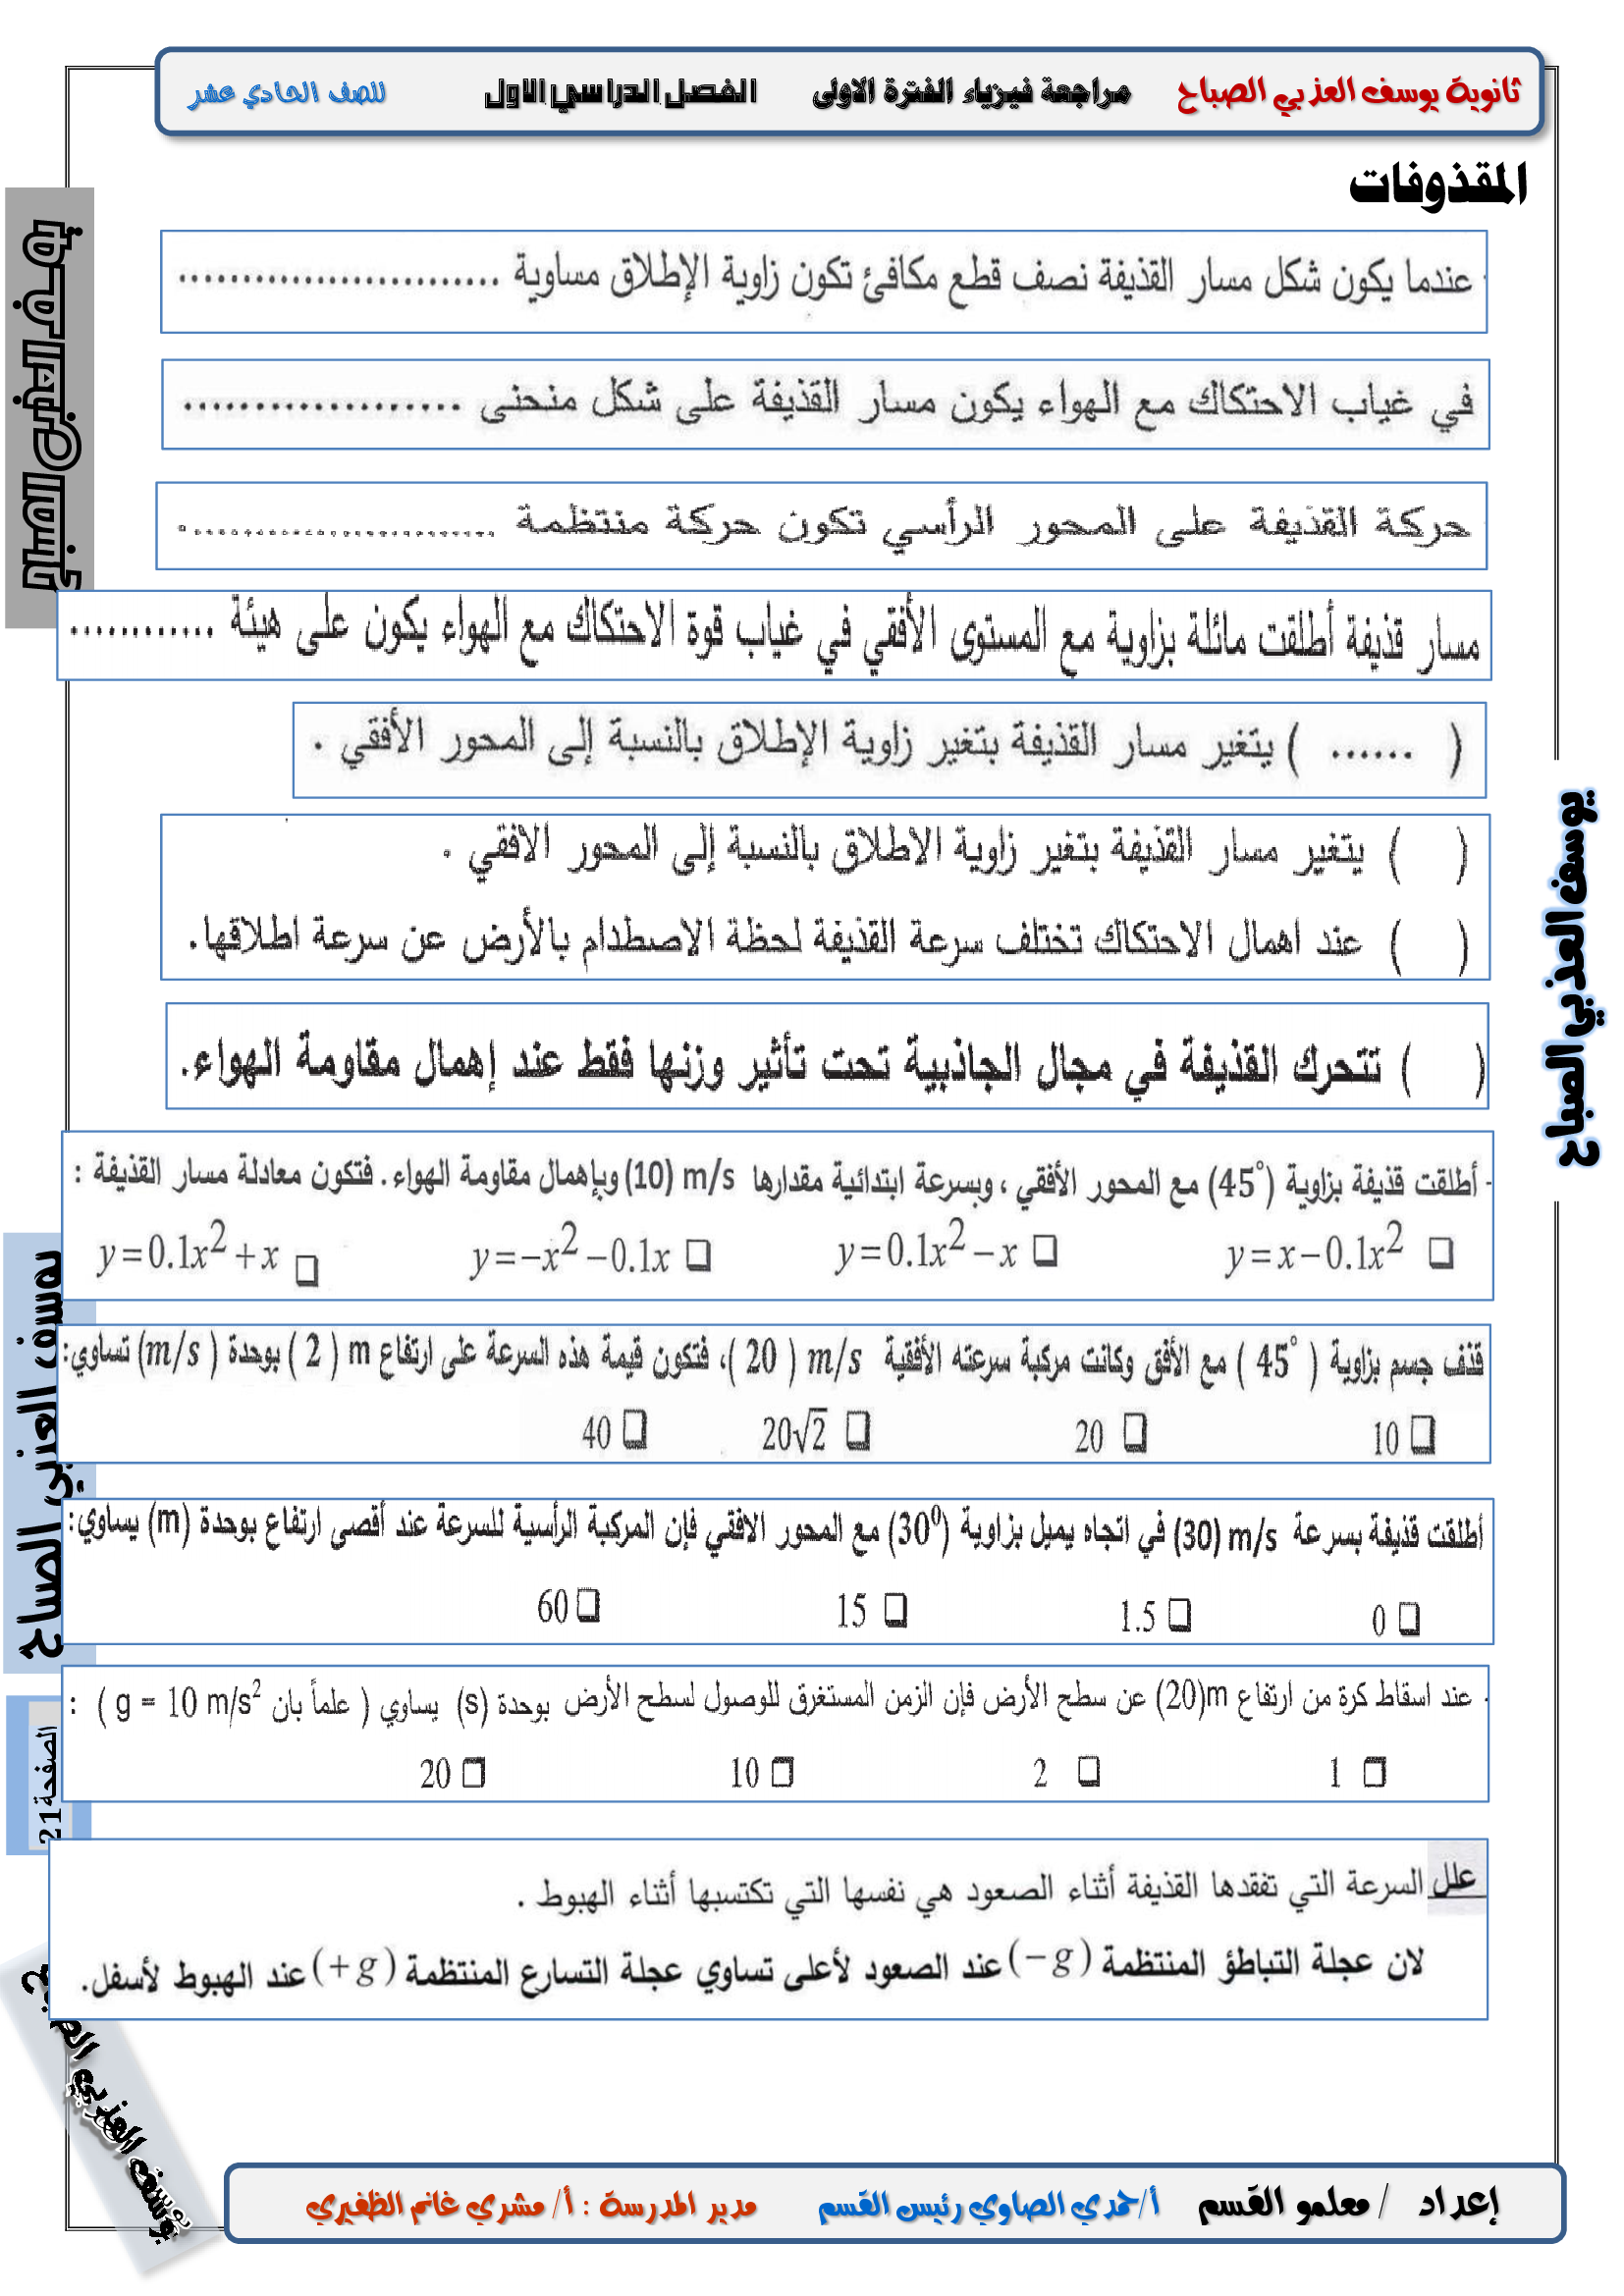 ثانوية يوسف العذبي الصباح مراجعة فيزياء الفترة الاولى الفصل الدراسي الاول للصف الحادي عشر
المقذوفات
- عندما يكون شكل مسار القذيفة نصف قطع مكافئ تكون زاوية الإطلاق مساوية ..........................
في غياب الاحتكاك مع الهواء يكون مسار القذيفة على شكل منحنى ....................
حركة القذيفة على المحور الرأسي تكون حركة منتظمة ..........................
مسار قذيفة أطلقت مائلة بزاوية مع المستوى الأفقي في غياب قوة الاحتكاك مع الهواء يكون على هيئة ............
( ...... ) يتغير مسار القذيفة بتغير زاوية الإطلاق بالنسبة إلى المحور الأفقي .
( ) يتغير مسار القذيفة بتغير زاوية الاطلاق بالنسبة إلى المحور الافقي .
( ) عند اهمال الاحتكاك تختلف سرعة القذيفة لحظة الاصطدام بالأرض عن سرعة اطلاقها.
( ) تتحرك القذيفة في مجال الجاذبية تحت تأثير وزنها فقط عند إهمال مقاومة الهواء.
- أطلقت قذيفة بزاوية (45°) مع المحور الأفقي ، وبسرعة ابتدائية مقدارها (10) m/s وبإهمال مقاومة الهواء . فتكون معادلة مسار القذيفة :
❑ y=x−0.1x² ❑ y=0.1x²−x ❑ y=−x²−0.1x ❑ y=0.1x²+x
قذف جسم بزاوية ( 45° ) مع الأفق وكانت مركبة سرعته الأفقية ( 20 ) m/s، فتكون قيمة هذه السرعة على ارتفاع ( 2 ) m بوحدة ( m/s) تساوي:
❑ 10 ❑ 20 ❑ 20√2 ❑ 40
أطلقت قذيفة بسرعة (30) m/s في اتجاه يميل بزاوية (30⁰) مع المحور الافقي فإن المركبة الرأسية للسرعة عند أقصى ارتفاع بوحدة (m) يساوي:
❑ 0 ❑ 1.5 ❑ 15 ❑ 60
- عند اسقاط كرة من ارتفاع (20)m عن سطح الأرض فإن الزمن المستغرق للوصول لسطح الأرض بوحدة (s) يساوي ( علماً بان g = 10 m/s² ) :
❑ 1 ❑ 2 ❑ 10 ❑ 20
علل السرعة التي تفقدها القذيفة أثناء الصعود هي نفسها التي تكتسبها أثناء الهبوط .
لان عجلة التباطؤ المنتظمة (−g) عند الصعود لأعلى تساوي عجلة التسارع المنتظمة (+g) عند الهبوط لأسفل.
يوسف العذبي الصباح
يوسف العذبي الصباح
الصفحة 21
يوسف العذبي
إعداد / معلمو القسم أ/حمدي الصاوي رئيس القسم مدير المدرسة : أ/ مشري غانم الظفيري